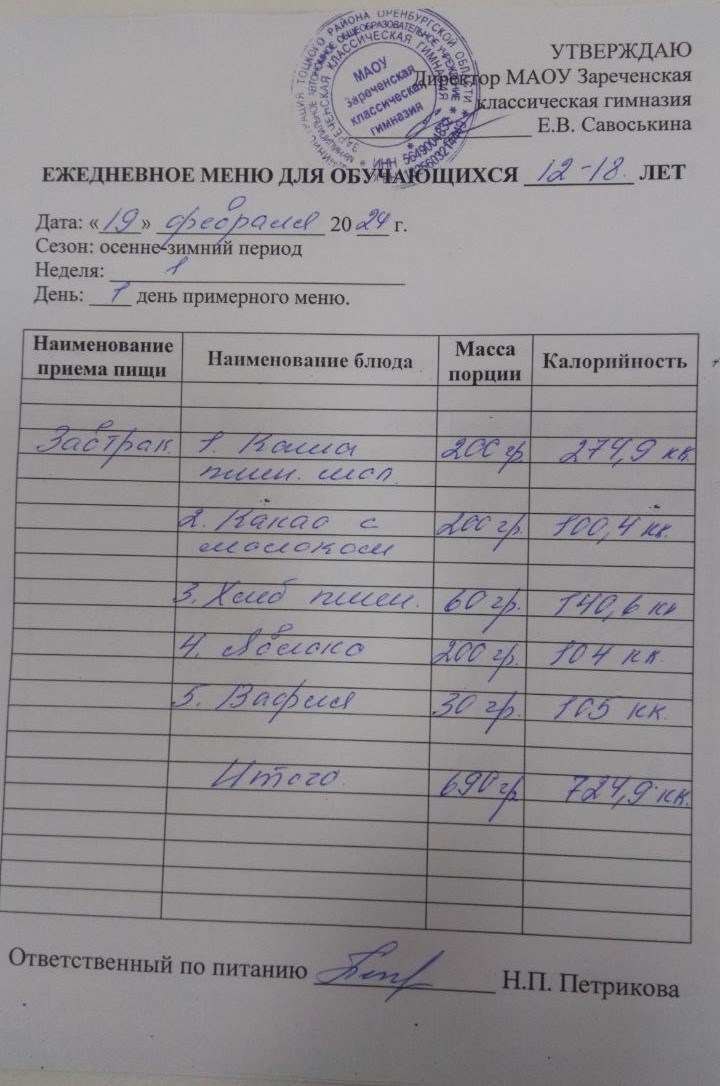 АДМИНИСТРАЦИЯ ТОЦКОГО РАЙОНА ОРЕНБУРГСКОЙ ОБЛАСТИ
МУНИЦИПАЛЬНОЕ АВТОНОМНОЕ ОБЩЕОБРАЗОВАТЕЛЬНОЕ УЧРЕЖДЕНИЕ
ЗАРЕЧЕНСКАЯ КЛАССИЧЕСКАЯ ГИМНАЗИЯ
МАОУ
Зареченская
классическая
гимназия
УТВЕРЖДАЮ
Директор МАОУ Зареченская
классическая гимназия
Е.В. Савоськина
ЕЖЕДНЕВНОЕ МЕНЮ ДЛЯ ОБУЧАЮЩИХСЯ 12-18 ЛЕТ
Дата: «19» февраля 2024 г.
Сезон: осенне-зимний период
Неделя: 1
День: 1 день примерного меню.
Наименование приема пищи Наименование блюда Масса порции Калорийность
Завтрак 1. Каша 200 гр. 274,9 кк.
пшен. мол.
2. Какао с 200 гр. 100,4 кк.
молоком
3. Хлеб пшен. 60 гр. 140,6 кк
4. Яблоко 200 гр. 104 кк.
5. Вафля 30 гр. 105 кк.
Итого 690 гр 724,9 кк.
Ответственный по питанию Н.П. Петрикова